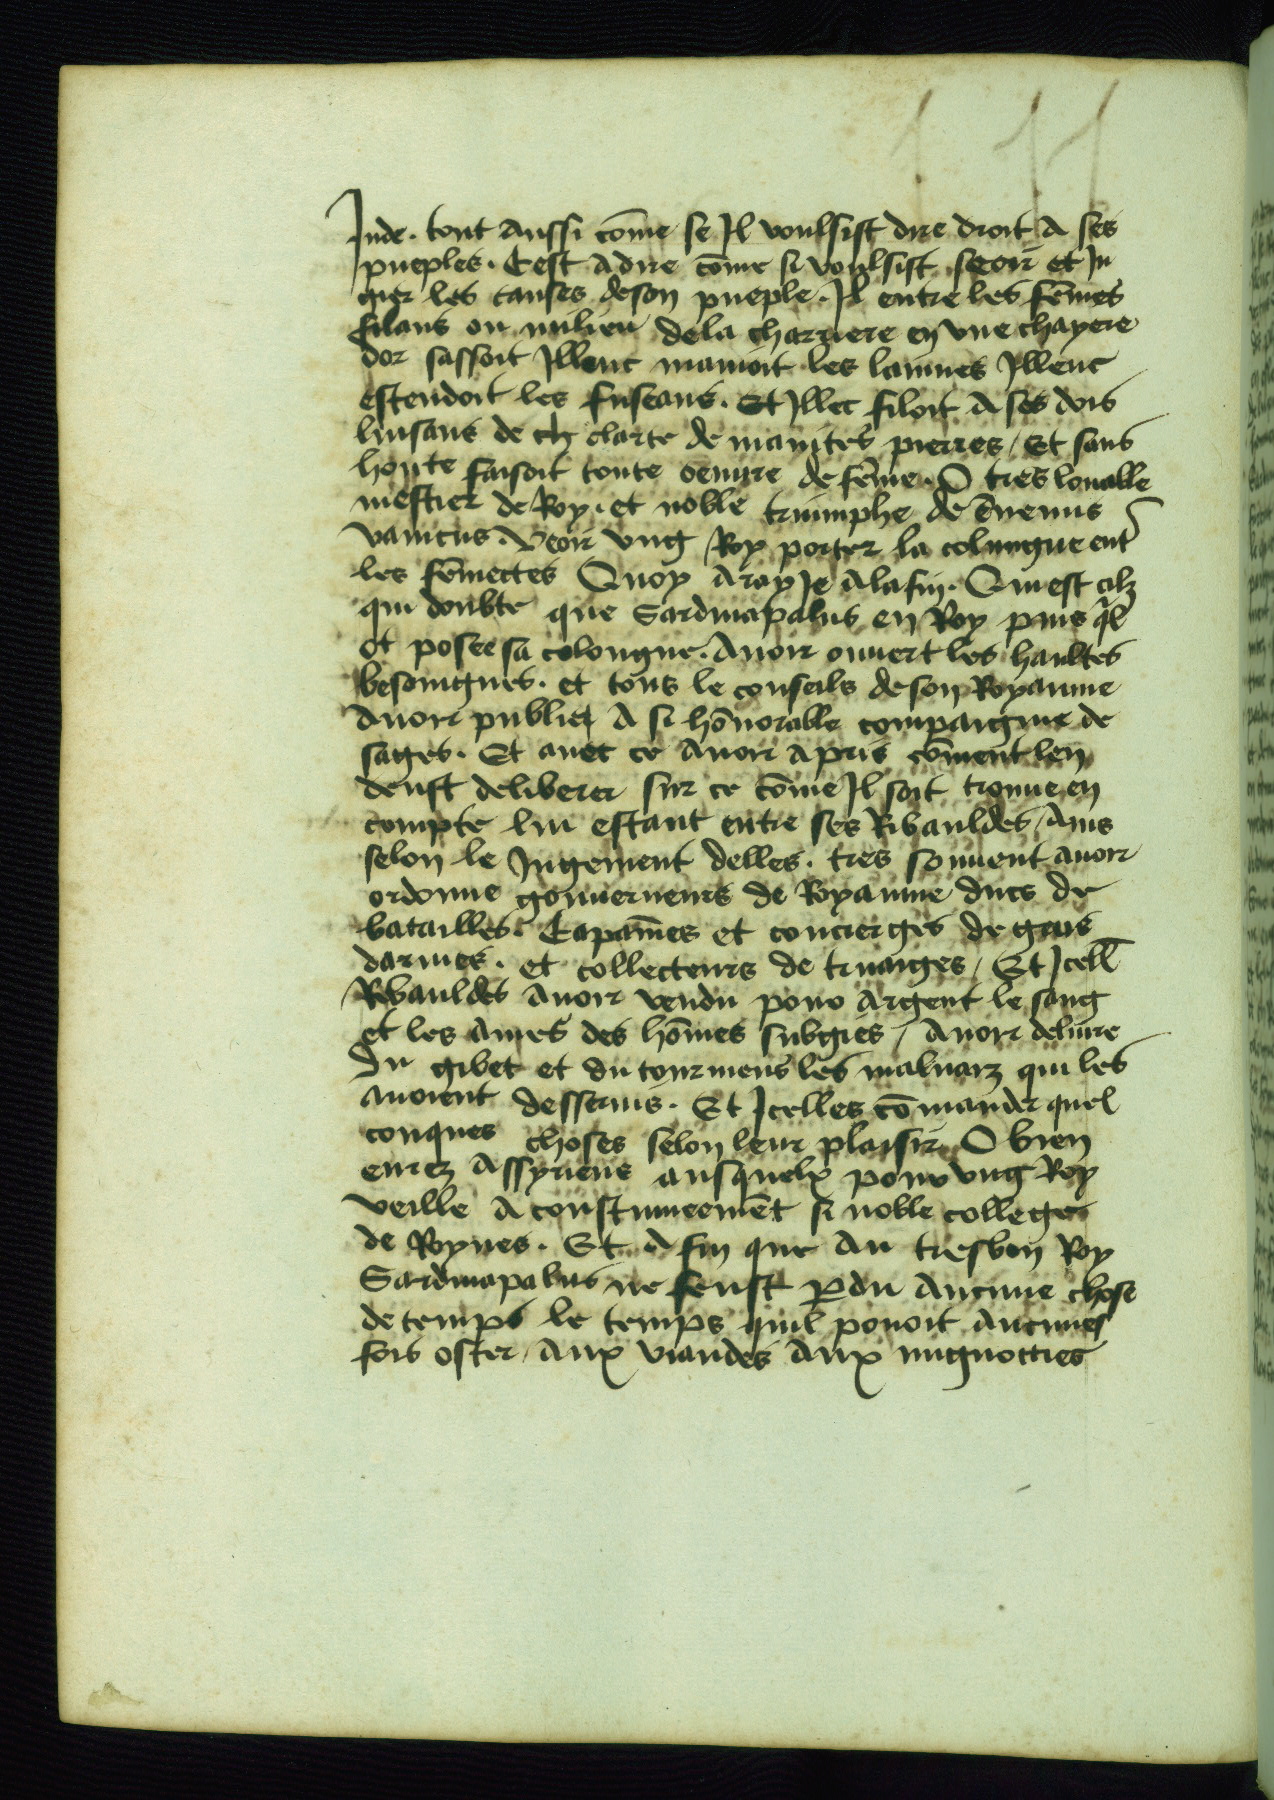 Inde. tout aussi cōme se Il voulsist dire droit A ses
pueples. Cest adire cōme si voulsist seoir et Iu
gier les causes deson pueple. Il entre les fēmes
filans ou milieu dela charriere en vne chayere
dor sassoit Illenc manioit les lainnes Illenc
estendoit les fuseaus. Et Illec filoit A ses dois
luisans de ch clarte de maintes pierres / Et sans
honte faisoit toute oeuure de fēme. O tres louable
mestier de Roy. et noble triumphe de
vaincus. Veoir vng Roy porter la colungue ent
les fēmettes Quoy Aray Ie Alafin. Qui est cilz
qui doubte que Sardinapalus en Roy puis ql
ot posee sa colongne. Auoir ouuert les haultes
besoingnes. et tous le conseils deson Royaume
Auoir publiet A si hōnorable compaignie de
sages. Et auec ce Auoir apris cōment len
deust deliberer sur ce cōme Il soit trouue en
compte lui estant entre ses Ribauldes / Ains
selon le Iugement delles. tres souuent auoir
ordonne gouuerneurs de Royaume ducs de
batailles. Capaines et concierges de gens
darmes. et collecteurs de truaiges / Et Icell
Ribauldes Auoir vendu pour Argent le sang
et les Ames des hōmes subgies / Auoir deliure
Du gibet et du tourmens les maluaiz qui les
auoient desseruis. Et Icelles cōmander quel
conques choses selon leur plaisir O bien
eurez Assyriens ausquelx pour vng Roy
veille A coustumeemēt si noble colleges
de Roynes. Et A fin que Au tresbon Roy
Sardinapalus ne feust pdu Aucune chose
de temps le temps quil pouoit Aucunes
fois oster / Aux viandes Aux mignotties